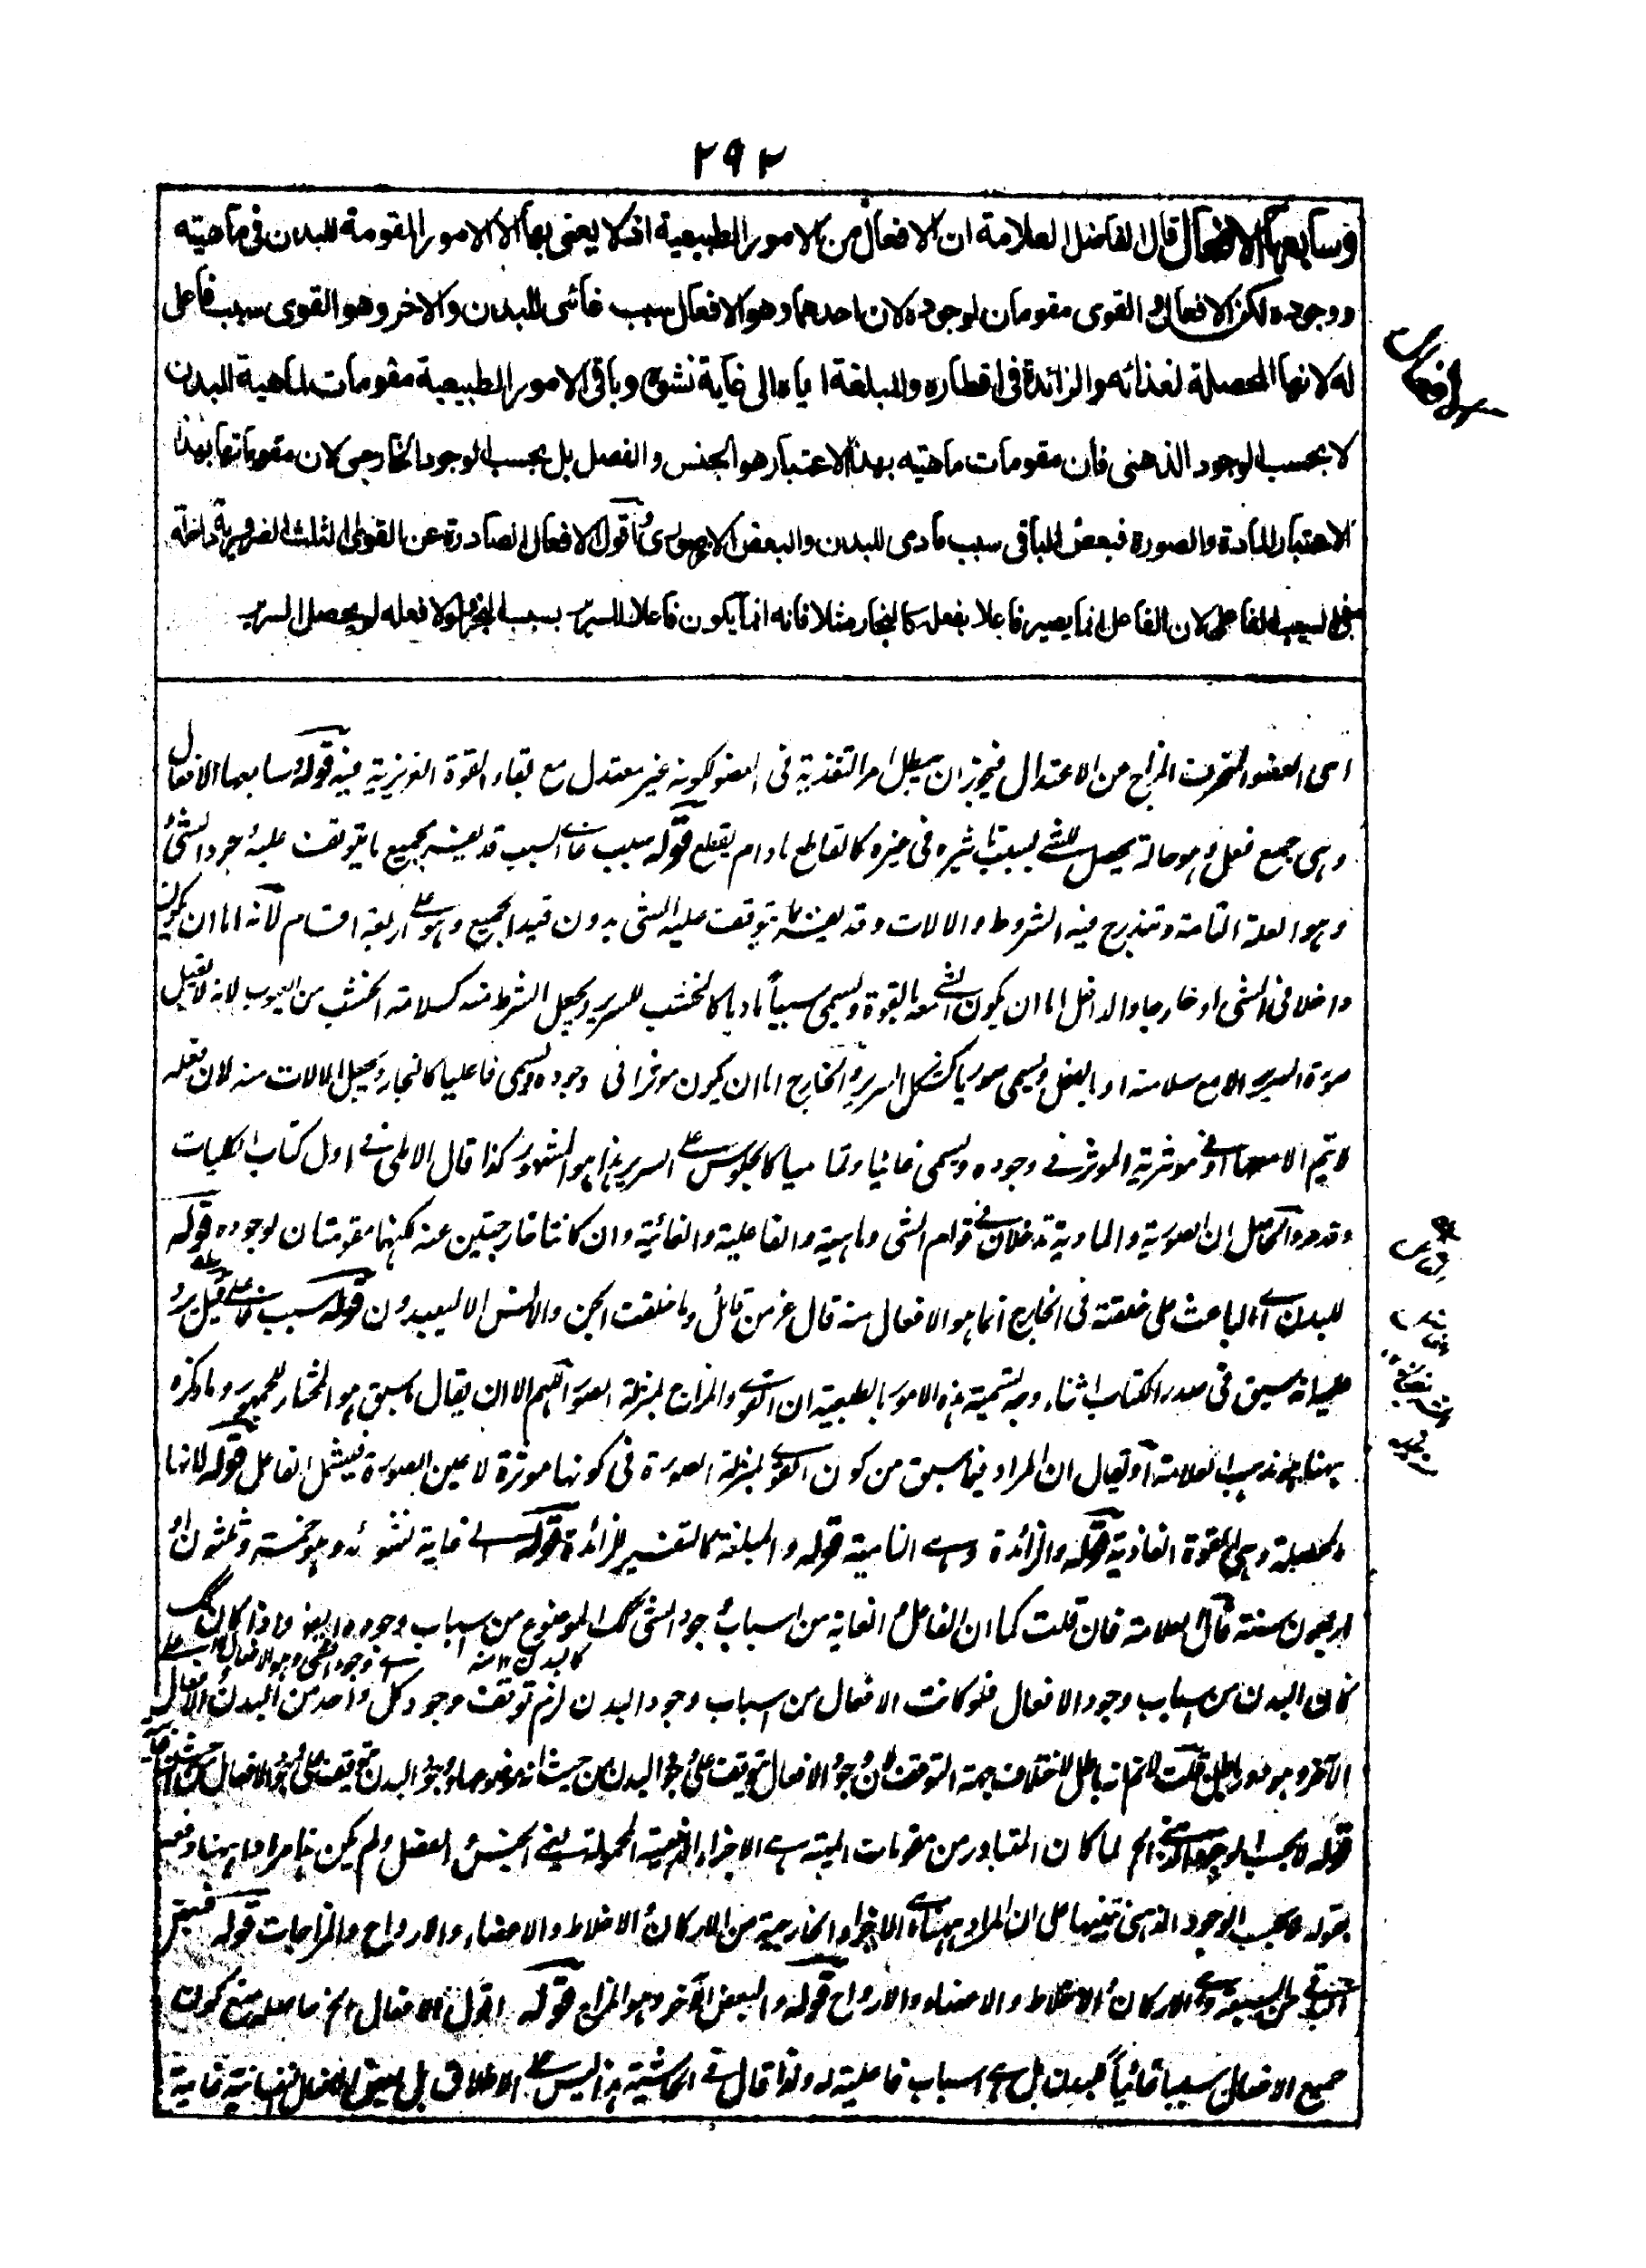 ٢٩٢
وسابعها الافعال قال الفاضل العلامة ان الافعال من الامور الطبيعية اذ لا يعنى بها الا الامور المقومة للبدن فى ماهيته
ووجوده لكن الافعال و القوى مقومان لوجوده لان احدهما وهو الافعال سبب غائى للبدن والاخر وهو القوى سبب فاعلى
له لانها المحصلة لغذائه والزائدة فى اقطاره والمبلغة اياه الى غاية نشوه وباقى الامور الطبيعية مقومات لماهية البدن
لا بحسب الوجود الذهنى فان مقومات ماهيته بهذا الاعتبار هو الجنس و الفصل بل بحسب الوجود الخارجى لان مقوماتها بهذا
الاعتبار المادة والصورة فبعض الباقى سبب مادى للبدن والبعض الاخر صورى اقول الافعال الصادرة عن القوى الثلث الضرورية داخلة
فى السبب الفاعلى لان الفاعل انما يصير فاعلا بفعله كالنجار مثلا فانه انما يكون فاعلا للسرير بسبب النجر ولولا فعله لم يحصل السرير
افعال
اى العضو المتحرف المزاج من الاعتدال فيجوز ان يبطل امر التغذية فى العضو لكونه غير معتدل مع بقاء القوة الغريزية فيه قوله وسابعها الافعال
وهى جمع فعل وهو حالة يحصل للشئ بسبب تاثيره فى غيره كالقاطع مادام يقطع قوله سبب غائى السبب قد يفسر بجميع ما يتوقف عليه وجود الشئ
وهو العلة التامة وتندرج فيه الشروط والالات وقد يفسر بما يتوقف عليه الشئ بدون قيد الجميع وهو على اربعة اقسام لانه اما ان يكون
داخلا فى الشئ او خارجا والداخل اما ان يكون الشئ معه بالقوة ويسمى سببا ماديا كالخشب للسرير ويجعل الشرط منه كسلامة الخشب من العيوب لانه لا يقبل
صورة السرير الا مع سلامته او بالفعل ويسمى صوريا كشكل السرير والخارج اما ان يكون موثرا فى وجوده ويسمى فاعليا كالنجار ويجعل الالات منه لان فعله
لا يتم الا معها او فى موثرية الموثر فى وجوده ويسمى غائيا وتماميا كالجلوس على السرير هذا هو المشهور كذا قال الاملى فى اول كتاب الكليات
وقد مر والحاصل ان الصورية والمادية تدخلان فى قوام الشئ وماهية والفاعلية والغائية وان كانتا خارجتين عنه لكنهما مقومتان لوجوده قوله
للبدن اى الباعث على خلقته فى الخارج انما هو الافعال منه قال عز من قائل وما خلقت الجن والانس الا ليعبدون قوله سبب فاعلى قيل يرد
عليه انه سبق فى صدر الكتاب اثناء وجه تسمية هذه الامور بالطبيعية ان القوى والمزاج بمنزلة الصور اللهم الا ان يقال ما سبق هو المختار للجمهور وما ذكره
ههنا هو مذهب العلامة او يقال ان المراد فيما سبق من كون القوى بمنزلة الصورة فى كونها موثرة لا عين الصورة فيشمل الفاعل قوله لانها
المحصلة وهى القوة الغاذية قوله والزائدة وهى النامية قوله والمبلغة كالتفسير للزائدة قوله الى غاية نشوئه وهو خمسة وثلثون او
اربعون سنة قال العلامة فان قلت كما ان الفاعل والغاية من اسباب وجود الشئ كك الموضوع من اسباب وجوده ايضا واذا كان كك
كالبدن ١٢ منه
كان البدن من اسباب وجود الافعال فلو كانت الافعال من اسباب وجود البدن لزم توقف وجود كل واحد من البدن والافعال على
الآخر وهو دور باطل قلت لا نم انه باطل لاختلاف جهة التوقف لان وجود الافعال يتوقف على وجود البدن من حيث انه موضوعها ووجود البدن يتوقف على وجود الافعال من حيث انها غاية
قوله لا بحسب الوجود الذهنى الخ لما كان المتبادر من مقومات الماهية هى الاجزاء الذهنية المحمولة يعنى الجنس و الفصل ولم يكن هذا مرادا ههنا دفعه
بقوله لا بحسب الوجود الذهنى تنبيها على ان المراد ههنا هى الاجزاء الخارجية من الاركان و الاخلاط والاعضاء والارواح والمزاجات قوله فبعض
الباقى من السبعة وهى الاركان و الاخلاط والاعضاء والارواح قوله والبعض الآخر وهو المزاج قوله اقول الافعال الخ حاصله منع كون
جميع الافعال سببا غائيا للبدن بل هى اسباب فاعلية له ولذا قال فى الحاشية هذا ليس على الاطلاق بل بعض الافعال نفسانية غاية